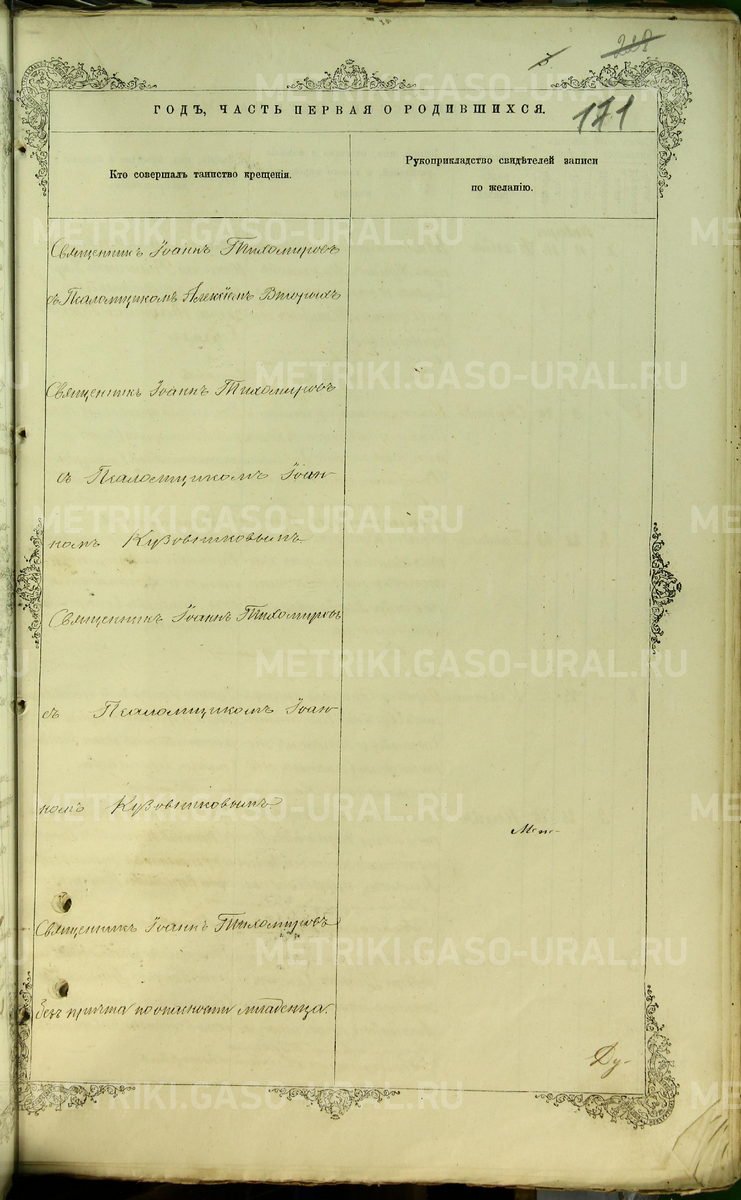 218
171
ГОДЪ, ЧАСТЬ ПЕРВАЯ О РОДИВШИХСЯ.
Кто совершалъ таинство крещенія.
Рукоприкладство свидѣтелей записи
по желанію.
Священникъ Іоаннъ Тихомировъ
съ Псаломщикомъ Алексѣемъ Вторыхъ
Священникъ Іоаннъ Тихомировъ
съ Псаломщикомъ Іоан-
номъ Кузовниковымъ
Священникъ Іоаннъ Тихомировъ
съ Псаломщикомъ Іоан-
номъ Кузовниковымъ
Священникъ Іоаннъ Тихомировъ
безъ причта по опасности младенца.
Ду-
METRIKI.GASO-URAL.RU